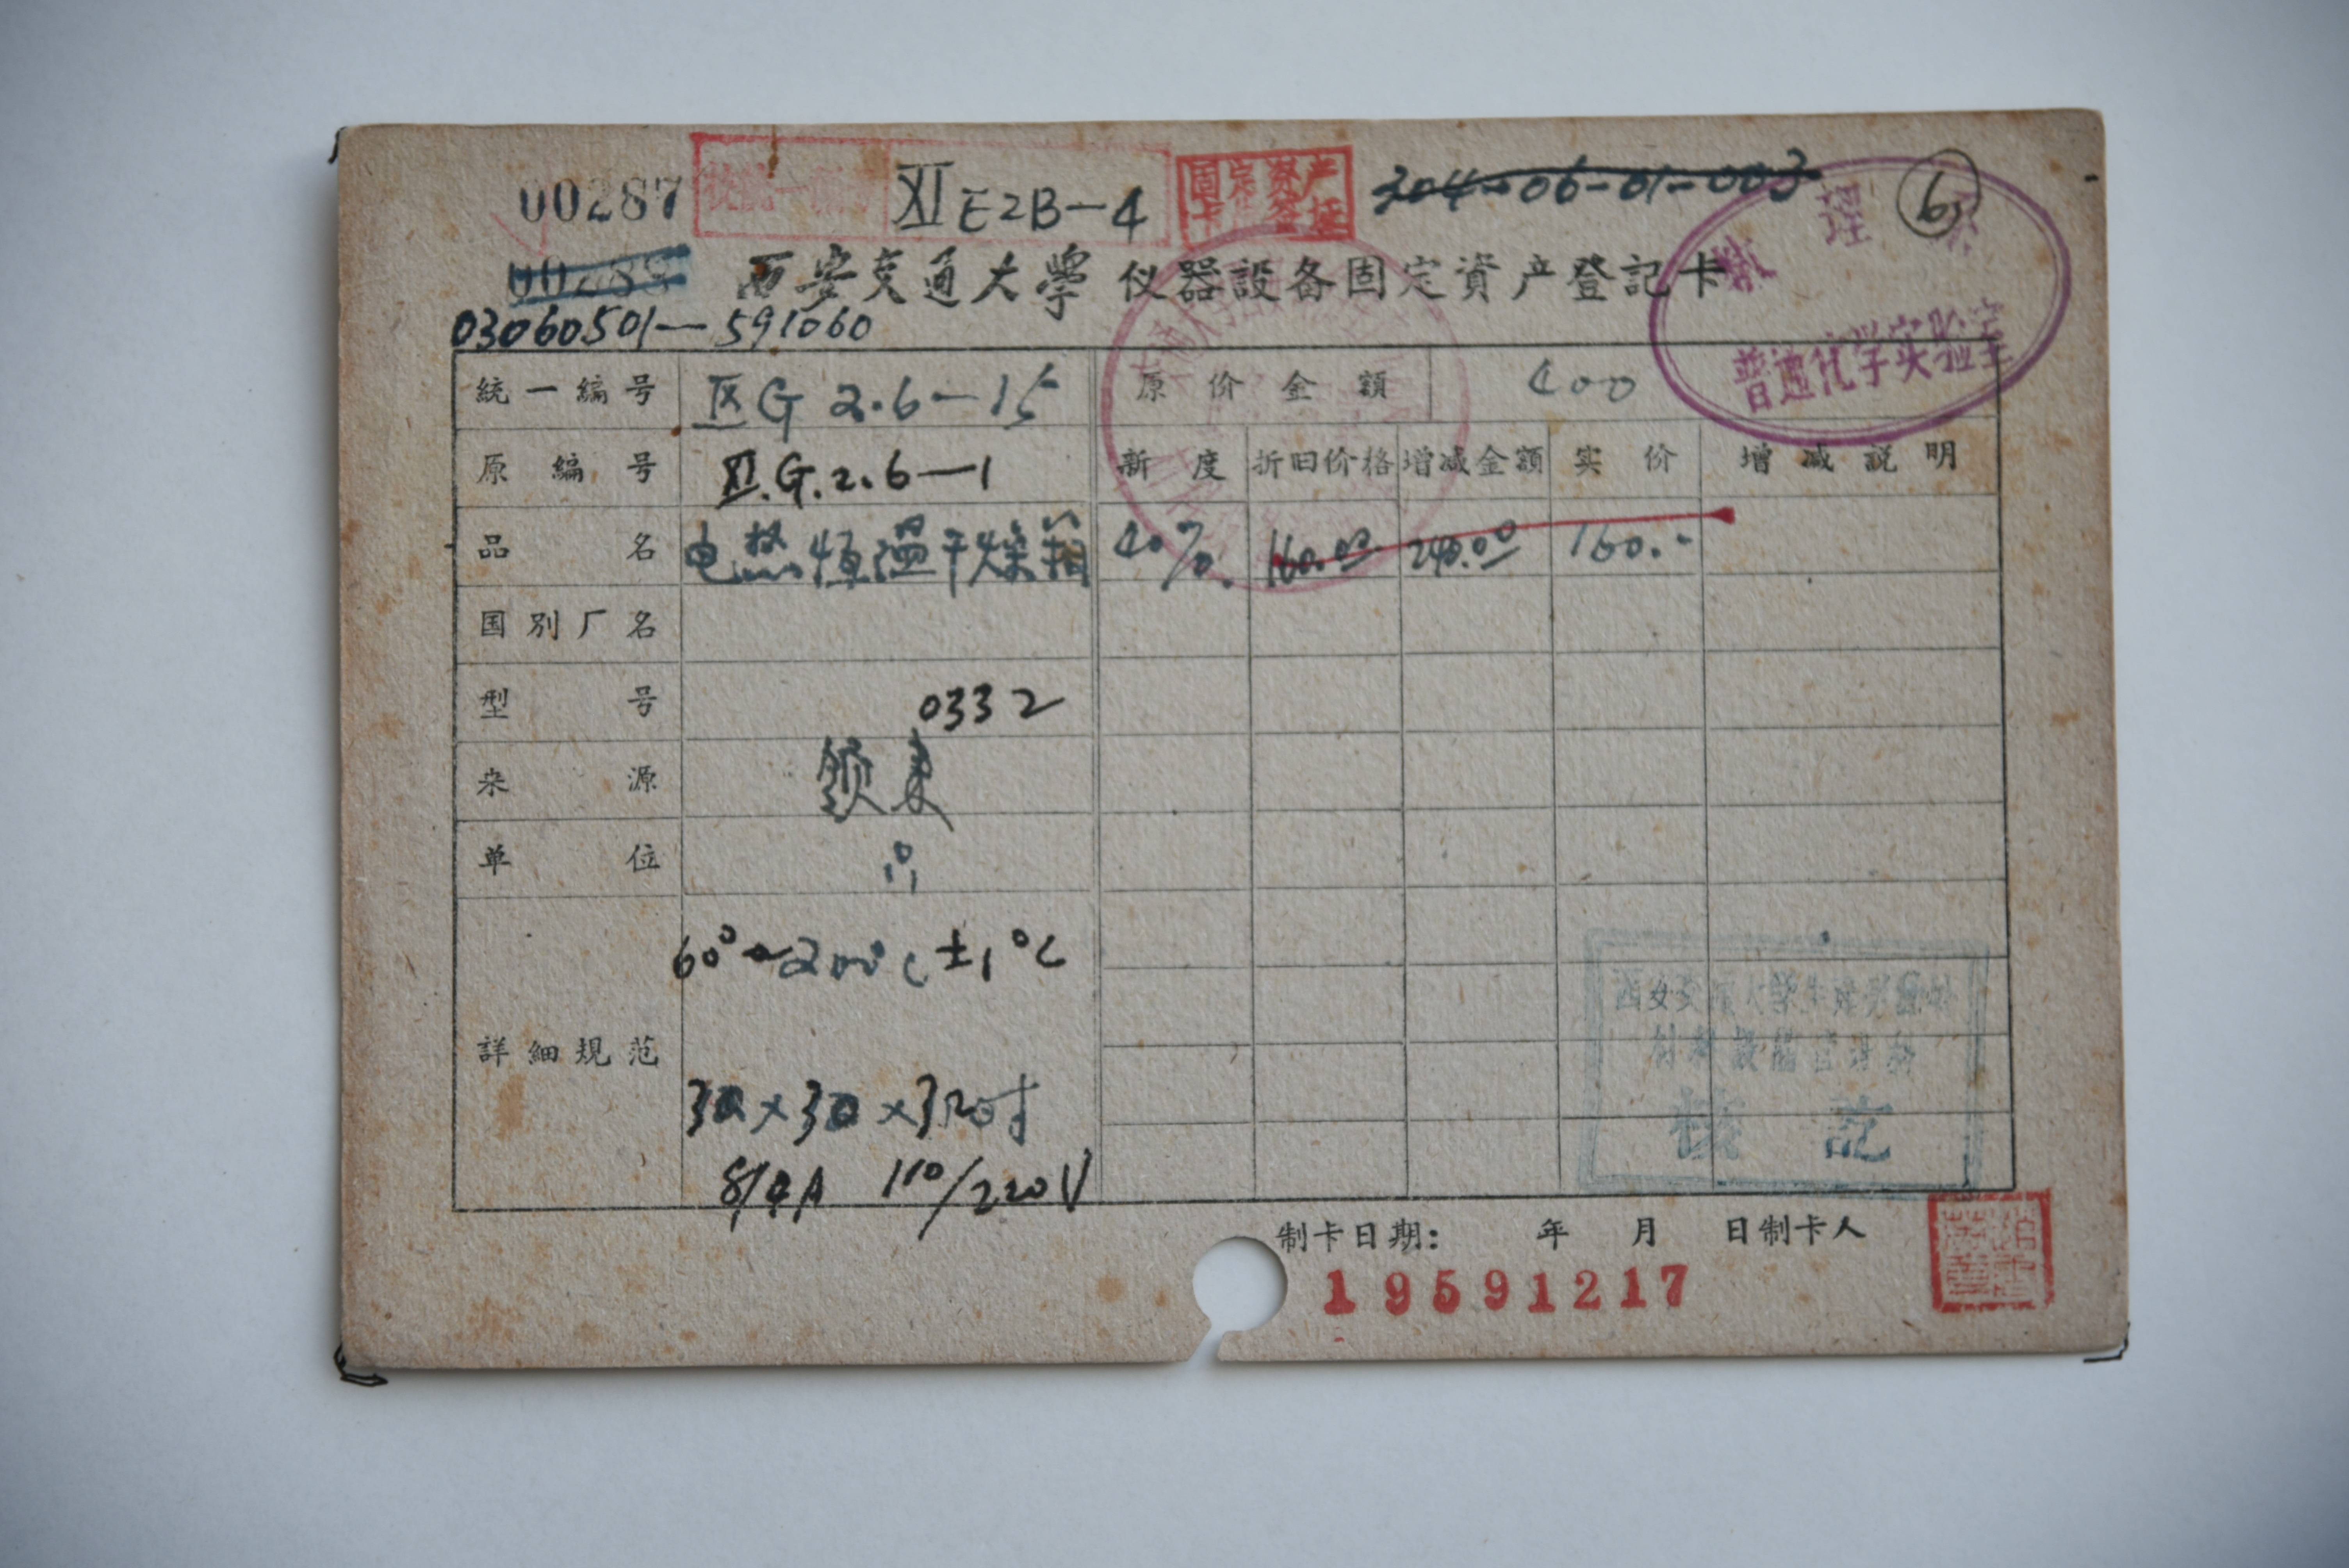 00287 XI E2B-4 固定资产 304-06-01-003 6
西安交通大學 仪器設备固定資产登記卡
03060501-591060
普通化学实验室
統一編号 区G 2.6-15 原价金額 400
原編号 XI.G.2.6-1 新度 折旧价格 增减金額 实价 增减説明
品名 电热恒温干燥箱 40%. 160.00 240.00 160.--
国别厂名
型号 0332
来源 领来
单位
60°~200°C ±1°C
詳細規范
8/4A 110/220V
核 記
制卡日期: 年 月 日制卡人
19591217